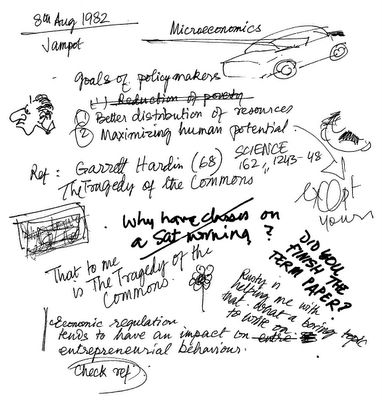 8th Aug 1982
Jampot
Microeconomics
- goals of policymakers
(1) Reduction of poverty
① Better distribution of resources
② Maximizing human potential
Ref: Garrett Hardin (68) SCIENCE
162, 1243-48
The Tragedy of the Commons
except
yours
Why have classes on
a Sat morning?
That to me
is The Tragedy of the
Commons.
DID YOU
FINISH THE
TERM PAPER?
Rusty is
helping me with
that. What a boring topic
to write on.
Economic regulation
tends to have an impact on entre
entrepreneurial behaviour.
Check ref.